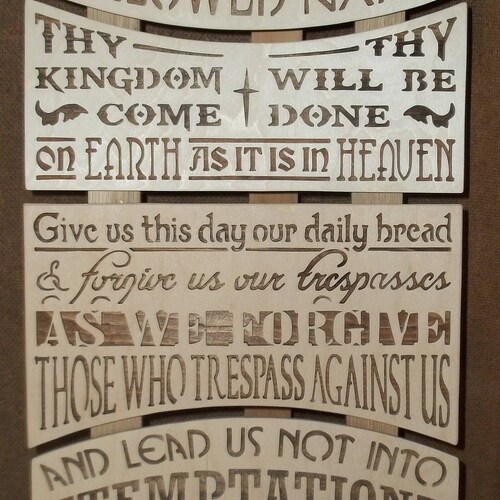 THY THY
KINGDOM WILL BE
COME DONE
on EARTH AS IT IS in HEAVEN
Give us this day our daily bread
& forgive us our trespasses
AS WE FORGIVE
THOSE WHO TRESPASS AGAINST US
AND LEAD US NOT INTO
TEMPTATION